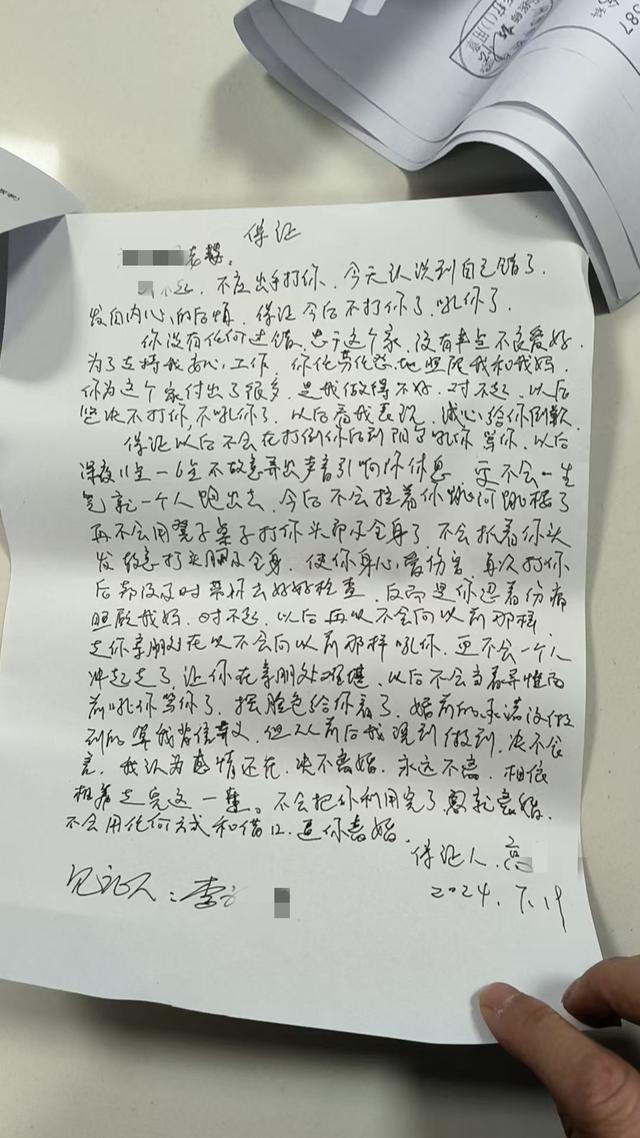 保证
老婆。
对不起，不应出手打你，今天认识到自己错了，
发自内心的后悔，保证今后不打你了，吼你了，
你没有任何过错，忠于这个家，没有半点不良爱好，
为了支持我安心工作，你任劳任怨地照顾我和我妈，
你为这个家付出了很多，是我做得不好，对不起，以后
坚决不打你，不吼你了，以后看我表现，诚心给你倒歉
保证以后不会在打倒你后到阳台吼你骂你，以后
深夜11点一6点不故意弄出声音引响你休息，更不会一生
气就一个人跑出去，今后不会拉着你跳河跳楼了
再不会用凳子桌子打你头部及全身了，不会抓着你头
发故意打头部及全身，使你身心受伤害，再次打你
后都没及时带你去好好检查，反而是你忍着伤痛
照顾我妈，对不起，以后再以不会向以前那样
走你亲朋处在以不会向以前那样吼你，更不会一个人
冲起走了，让你在亲朋处难堪，以后不会当着异性面
前吼你骂你了，摆脸色给你看了，婚前的承诺没做
到的算我背信弃义，但从今后我说到做到，决不食
言，我认为感情还在，决不离婚，永远不离，相依
相着走完这一生。不会把你利用完了就离婚，
不会用任何方式和借口，逼你离婚
保证人：高
见证人：李
2024.7.19